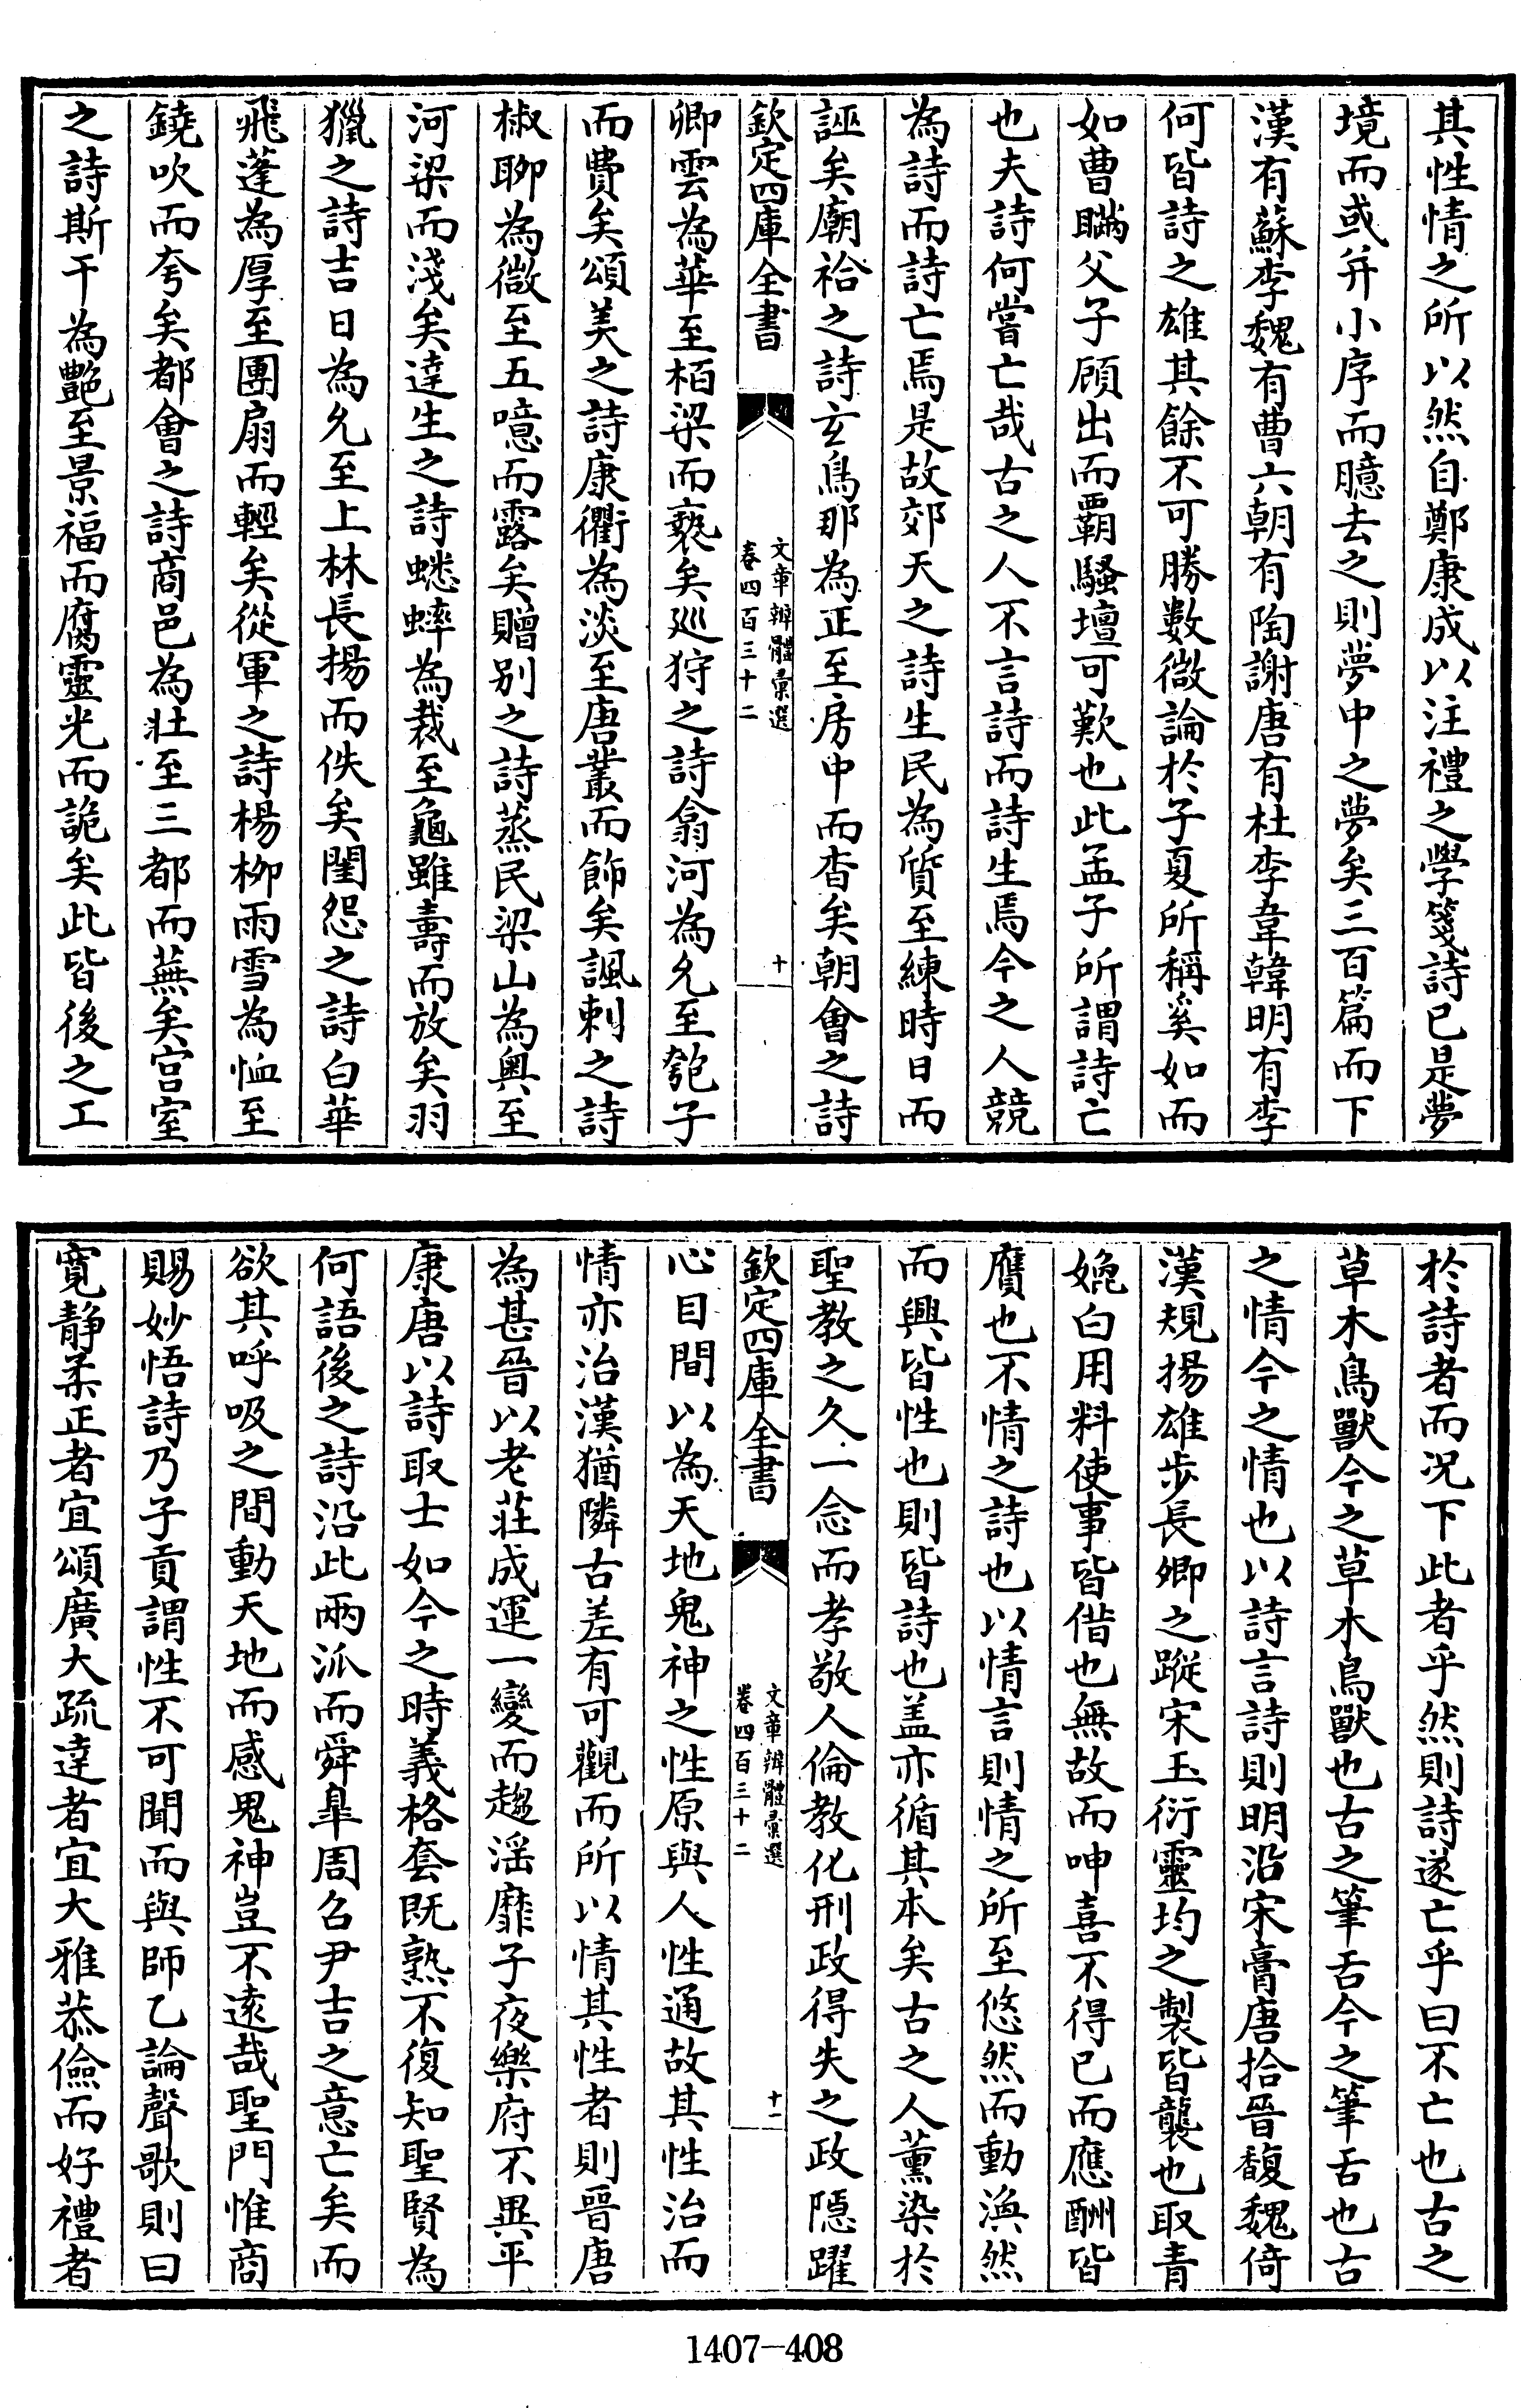 其性情之所以然自鄭康成以注禮之學箋詩已是夢
境而或并小序而臆去之則夢中之夢矣三百篇而下
漢有蘇李魏有曹六朝有陶謝唐有杜李韋韓明有李
何皆詩之雄其餘不可勝數微論於子夏所稱奚如而
如曹瞞父子顧出而霸騷壇可歎也此孟子所謂詩亡
也夫詩何嘗亡哉古之人不言詩而詩生焉今之人競
為詩而詩亡焉是故郊天之詩生民為質至練時日而
誣矣廟祫之詩玄鳥那為正至房中而杳矣朝會之詩
欽定四庫全書
文章辨體彙選
卷四百三十二
十
卿雲為華至栢梁而褻矣廵狩之詩翕河為允至瓠子
而費矣頌美之詩康衢為淡至唐叢而飾矣諷刺之詩
椒聊為微至五噫而露矣贈别之詩蒸民梁山為奥至
河梁而淺矣達生之詩蟋蟀為裁至龜雖壽而放矣羽
獵之詩吉日為允至上林長揚而佚矣閨怨之詩白華
飛蓬為厚至團扇而輕矣從軍之詩楊柳雨雪為恤至
鐃吹而夸矣都會之詩商邑為壯至三都而蕪矣宫室
之詩斯干為艷至景福而腐靈光而詭矣此皆後之工
於詩者而况下此者乎然則詩遂亡乎曰不亡也古之
草木鳥獸今之草木鳥獸也古之筆舌今之筆舌也古
之情今之情也以詩言詩則明沿宋膏唐拾晉馥魏倚
漢規揚雄步長卿之蹤宋玉衍靈均之製皆襲也取青
媲白用料使事皆借也無故而呻喜不得已而應酬皆
贋也不情之詩也以情言則情之所至悠然而動渙然
而興皆性也則皆詩也盖亦循其本矣古之人薰染於
聖教之久一念而孝敬人倫教化刑政得失之政隠躍
欽定四庫全書
文章辨體彙選
卷四百三十二
十一
心目間以為天地鬼神之性原與人性通故其性治而
情亦治漢猶隣古差有可觀而所以情其性者則晉唐
為甚晉以老莊成運一變而趨滛靡子夜樂府不異平
康唐以詩取士如今之時義格套既熟不復知聖賢為
何語後之詩沿此兩派而舜臯周召尹吉之意亡矣而
欲其呼吸之間動天地而感鬼神豈不遠哉聖門惟商
賜妙悟詩乃子貢謂性不可聞而與師乙論聲歌則曰
寛靜柔正者宜頌廣大疏達者宜大雅恭儉而好禮者
1407-408